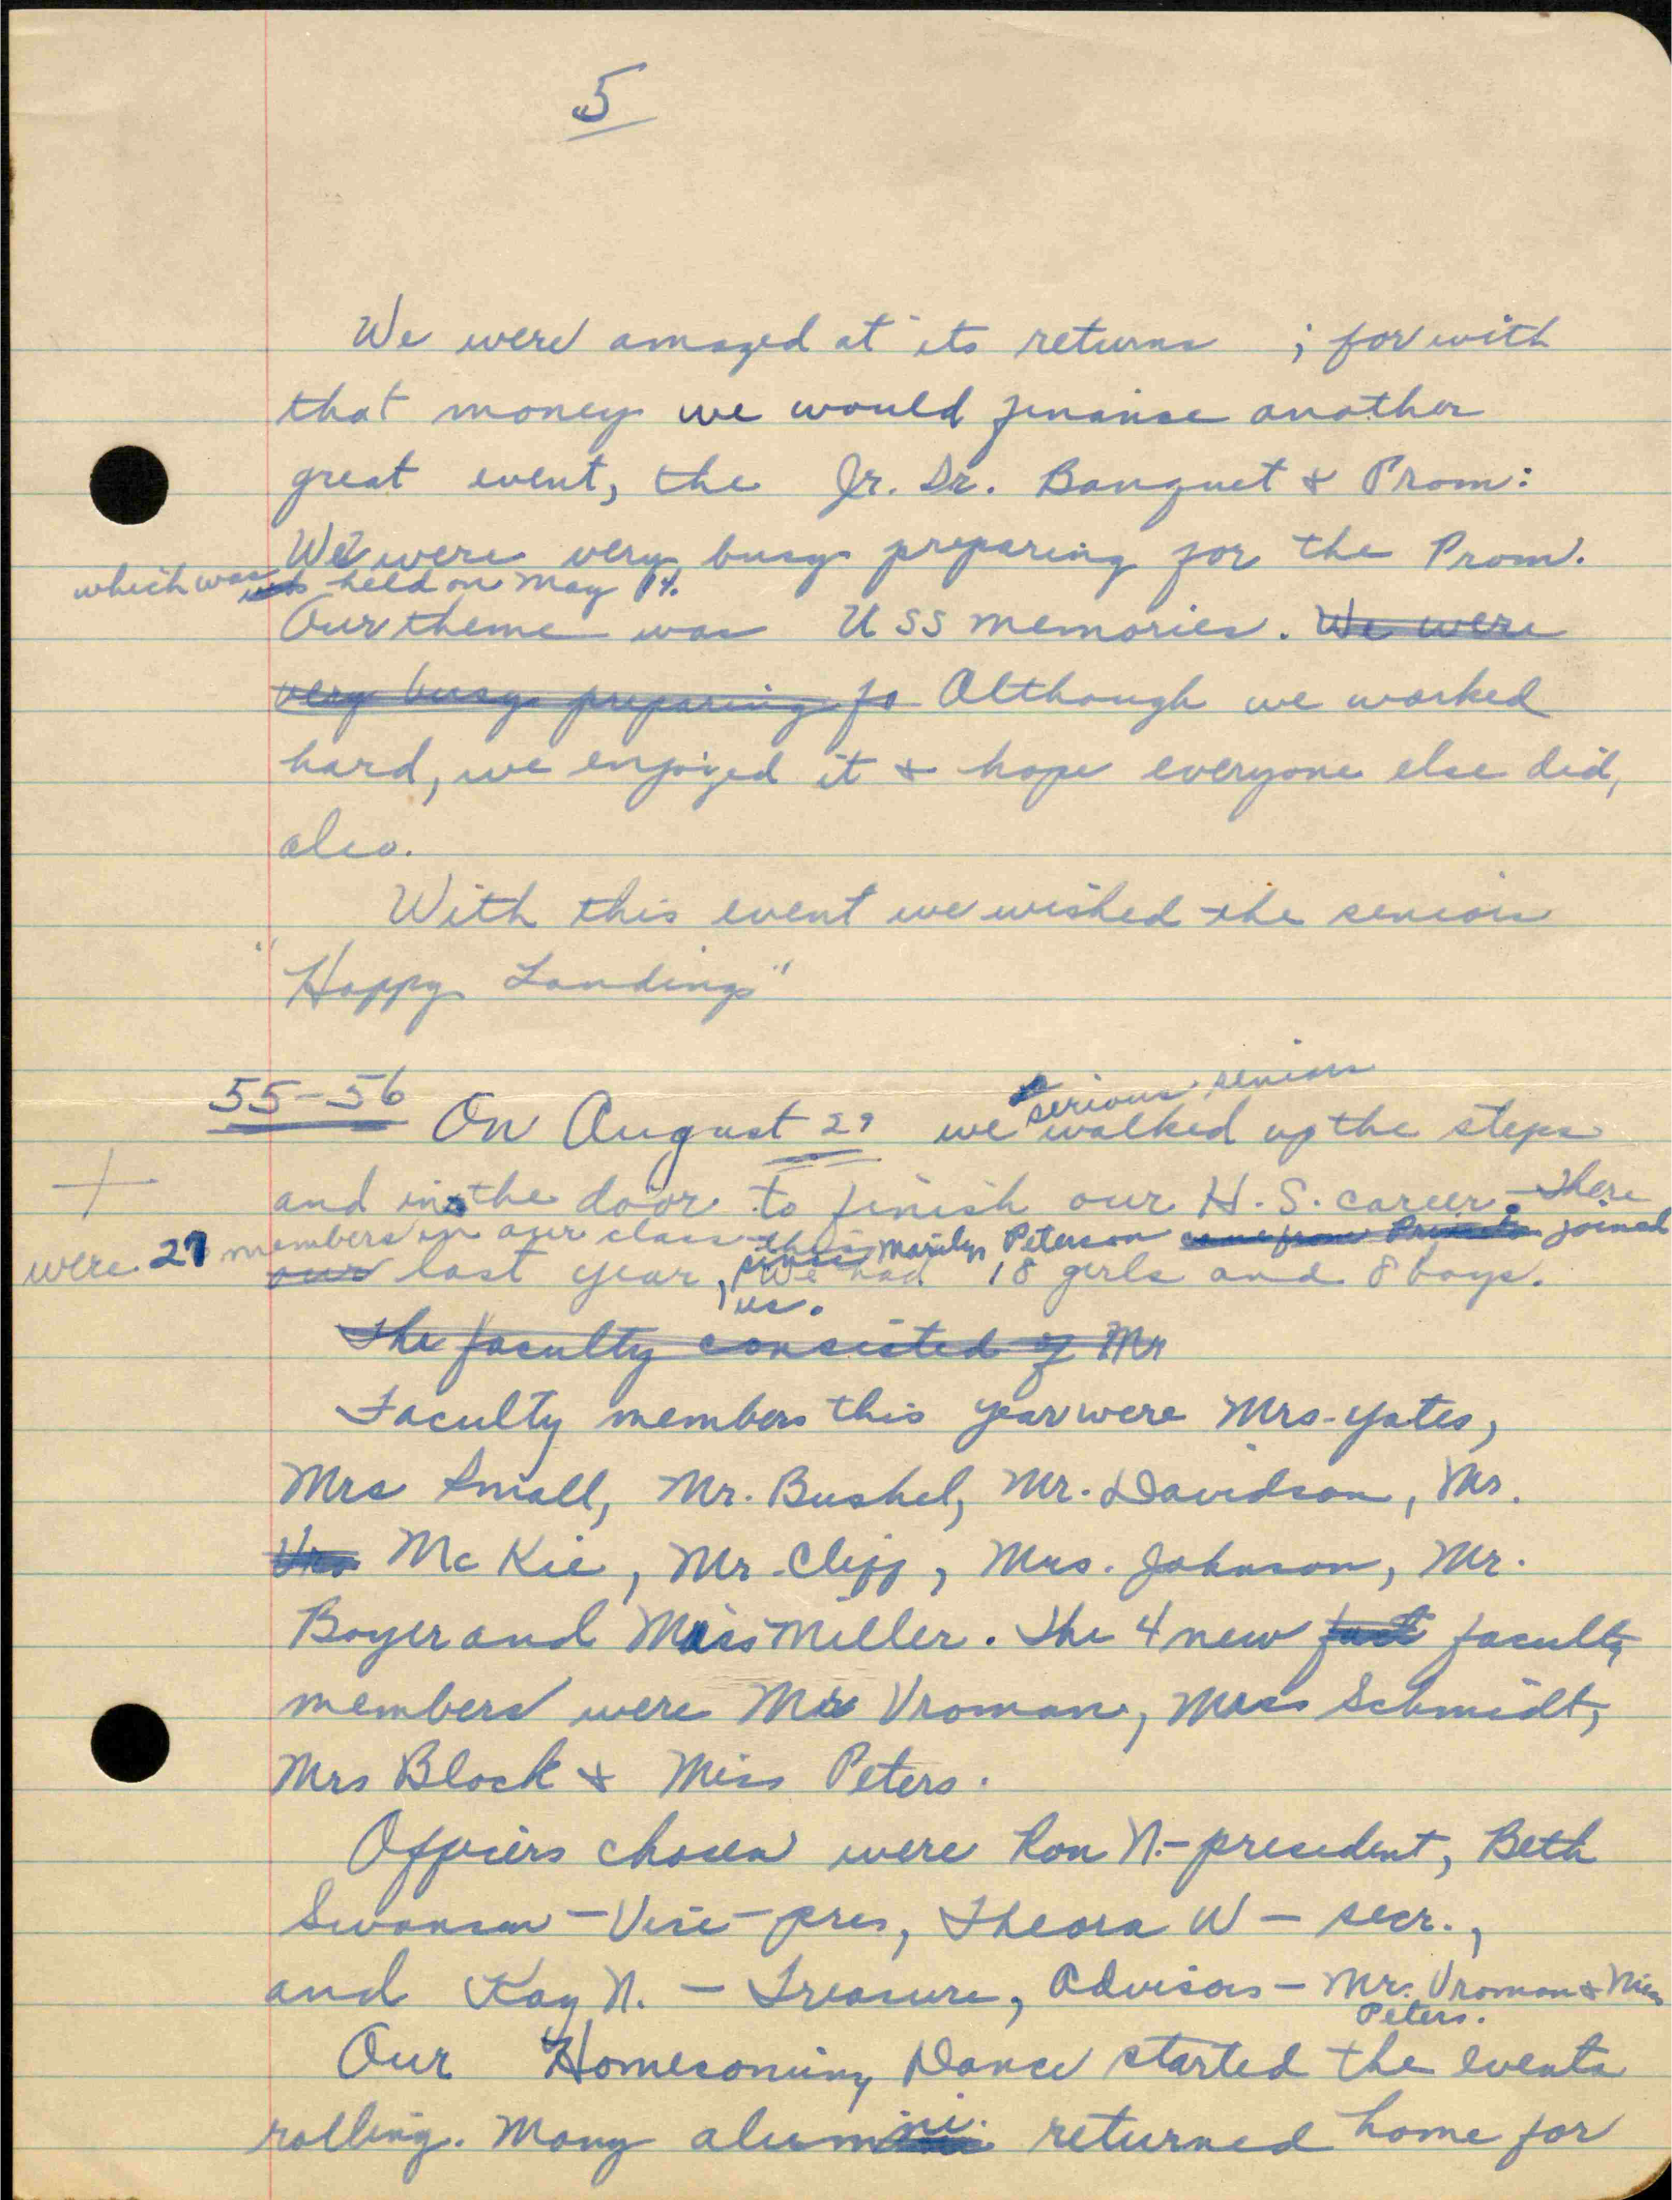 5
We were amazed at its returns ; for with
that money we would finance another
great event, the Jr. Sr. Banquet & Prom:
We were very busy preparing for the Prom.
which was held on May 14.
Our theme was USS memories. We were
very busy preparing fo Although we worked
hard, we enjoyed it & hope everyone else did,
also.
With this event we wished the seniors
"Happy Landings"
serious seniors
55-56 On August 29 we walked up the steps
and in the door to finish our H.S. career. There
were 27 members in our class this Marilyn Peterson came from joined
our last year, since We had 18 girls and 8 boys.
us.
The faculty consisted of Mr
Faculty members this year were Mrs. Yates,
Mrs Small, Mr. Bushel, Mr. Davidson, Mr.
Vro McKie, Mr. Cliff, Mrs. Johnson, Mr.
Boyer and Miss Miller. The 4 new fact faculty
members were Mr Vroman, Miss Schmidt,
Mrs Block & Miss Peters.
Officers chosen were Ron N.-president, Beth
Swanson - Vice-pres, Theora W - secr.,
and Kay N. - Treasure, Advisors - Mr. Vroman & Miss
Peters.
Our Homecoming Dance started the events
rolling. Many alumni returned home for